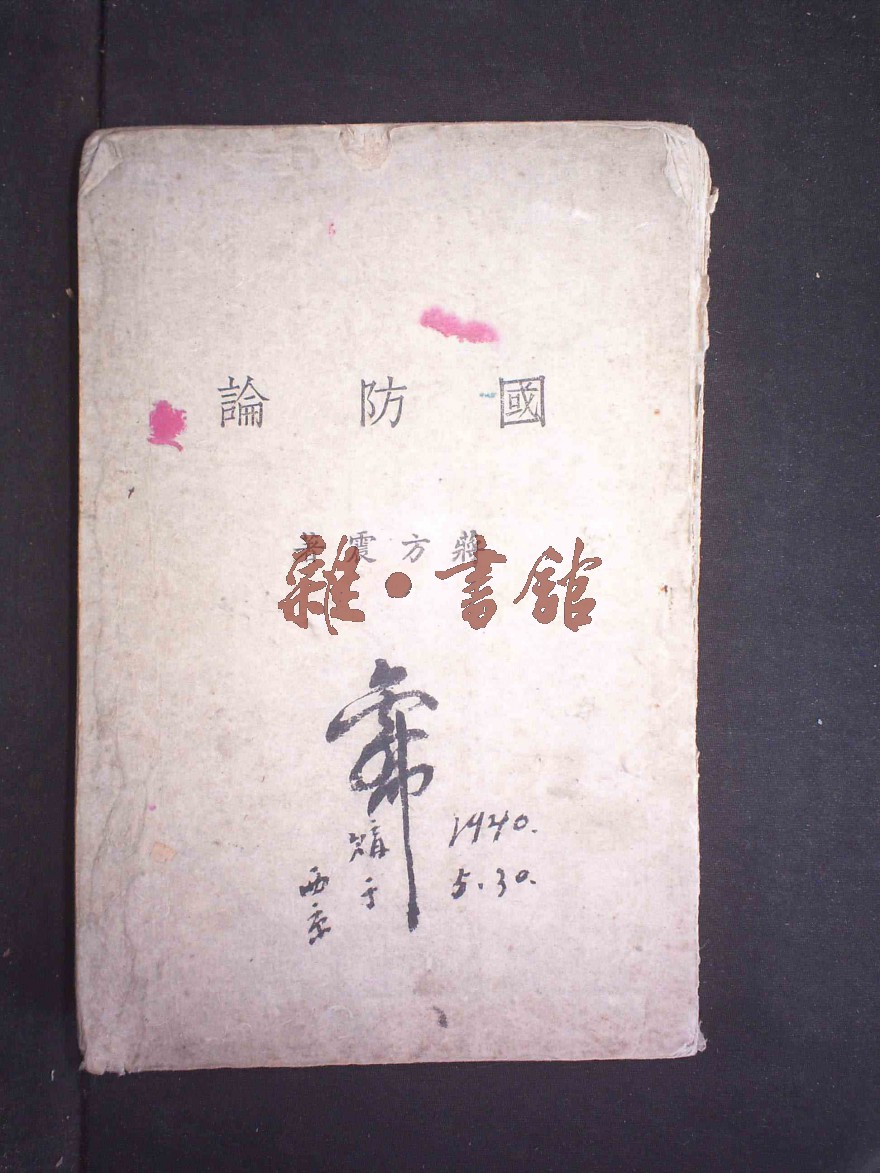 國防論
蔣方震著
雜·書館
1940.
5.30.
購于
西京